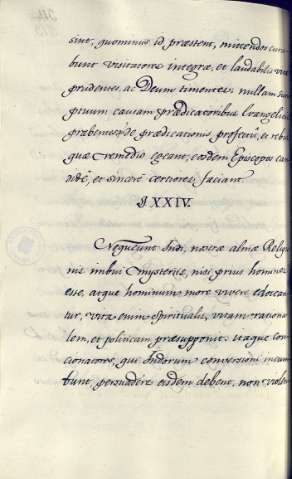 sint, quominus id præstent, mittendos cura
bunt visitatores integræ, et laudabilis vitæ
prudentes, ac Deum timentes, nullam
ptivam causam Prædicatoribus Evangelicis
præbentes, de prædicationis profectu, et rebus
quæ remedio egeant, eosdem Episcopos can
didè, et sincerè certiores faciant.
§ XXIV.
Nequeunt Indi, nostræ almæ Religio
nis imbui Mysteriis, nisi prius homines
esse, atque hominum more vivere edocean
tur, vita enim spiritualis, vitam rationa
lem, et politicam præsupponit. itaque con
cionatores, qui Indorum conversioni incum
bunt, persuadere eisdem debent, non violen